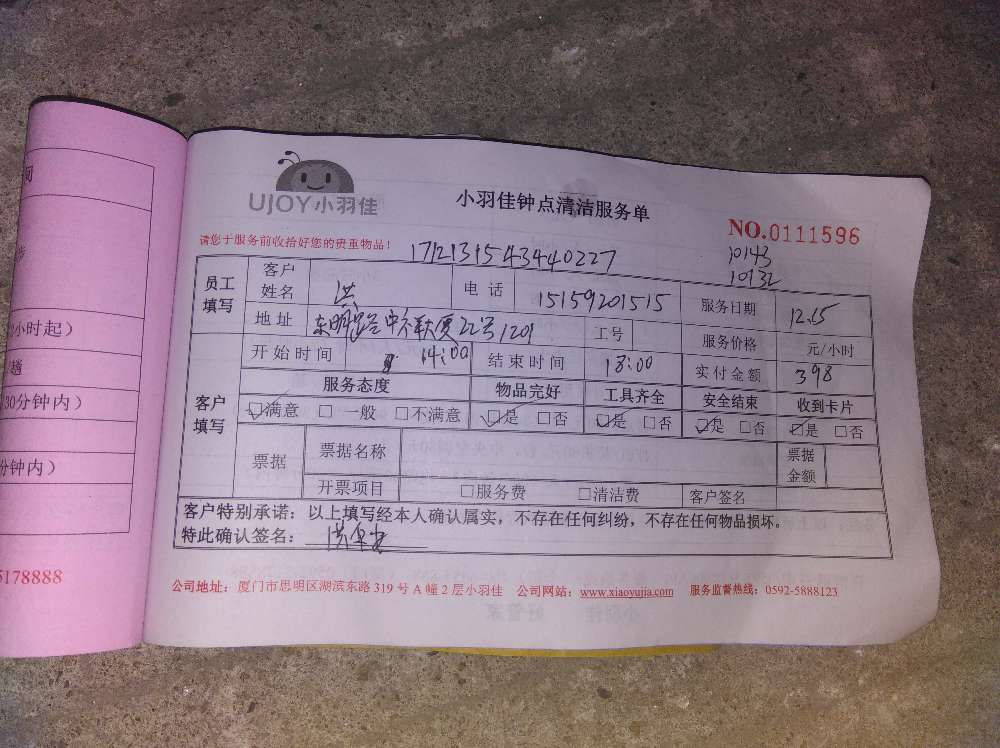 间
步
小时起）
趟
30分钟内）
分钟内）
5178888
UJOY小羽佳
小羽佳钟点清洁服务单
NO.0111596
请您于服务前收拾好您的贵重物品！
1712131543440227
10143
10132
员工填写 客户姓名 洪 电话 15159201515 服务日期 12.15
地址 东明路 大厦22号1201 工号 服务价格 元/小时
开始时间 14:00 结束时间 18:00 实付金额 398
客户填写 服务态度 物品完好 工具齐全 安全结束 收到卡片
☑满意 □一般 □不满意 ☑是 □否 ☑是 □否 ☑是 □否 ☑是 □否
票据 票据名称 票据金额
开票项目 □服务费 □清洁费 客户签名
客户特别承诺：以上填写经本人确认属实，不存在任何纠纷，不存在任何物品损坏。
特此确认签名：洪
公司地址：厦门市思明区湖滨东路319号A幢2层小羽佳 公司网站：www.xiaoyujia.com 服务监督热线：0592-5888123